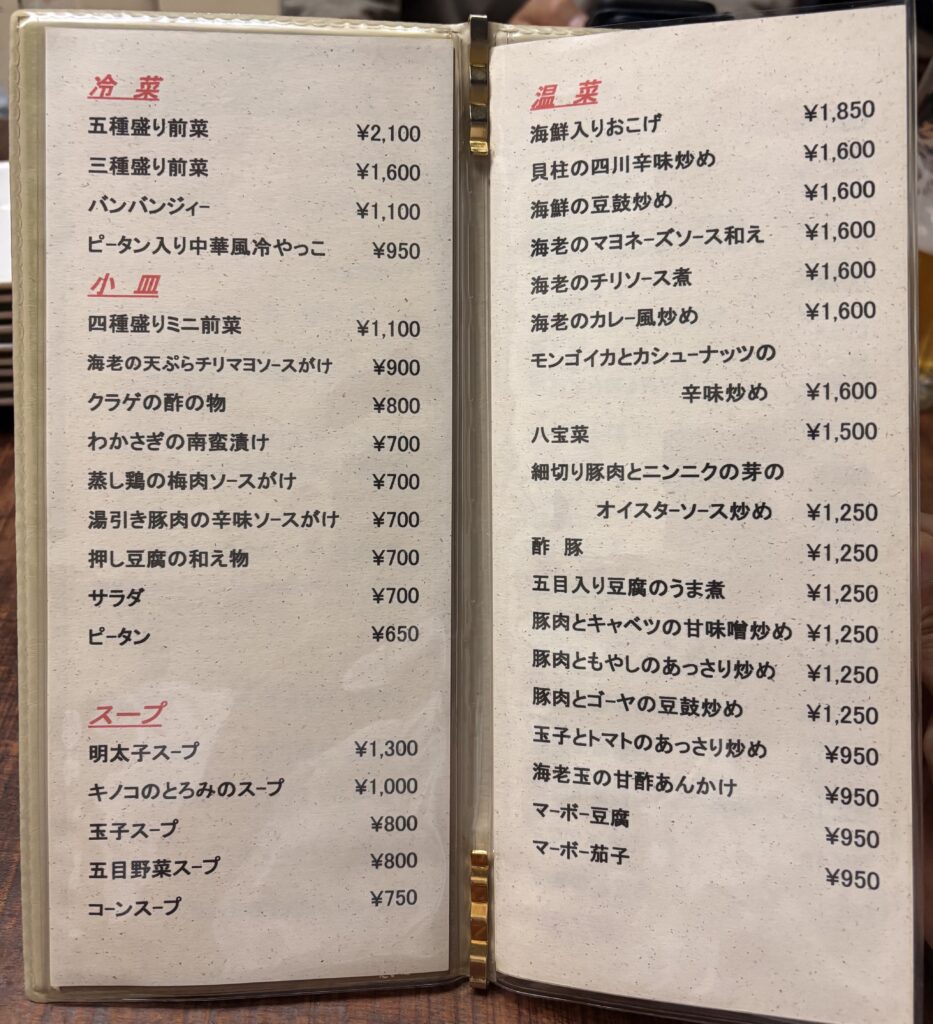 冷菜
五種盛り前菜 ¥2,100
三種盛り前菜 ¥1,600
バンバンジィー ¥1,100
ピータン入り中華風冷やっこ ¥950
小皿
四種盛りミニ前菜 ¥1,100
海老の天ぷらチリマヨソースがけ ¥900
クラゲの酢の物 ¥800
わかさぎの南蛮漬け ¥700
蒸し鶏の梅肉ソースがけ ¥700
湯引き豚肉の辛味ソースがけ ¥700
押し豆腐の和え物 ¥700
サラダ ¥700
ピータン ¥650
スープ
明太子スープ ¥1,300
キノコのとろみのスープ ¥1,000
玉子スープ ¥800
五目野菜スープ ¥800
コーンスープ ¥750
温菜
海鮮入りおこげ ¥1,850
貝柱の四川辛味炒め ¥1,600
海鮮の豆鼓炒め ¥1,600
海老のマヨネーズソース和え ¥1,600
海老のチリソース煮 ¥1,600
海老のカレー風炒め ¥1,600
モンゴイカとカシューナッツの
辛味炒め ¥1,600
八宝菜 ¥1,500
細切り豚肉とニンニクの芽の
オイスターソース炒め ¥1,250
酢豚 ¥1,250
五目入り豆腐のうま煮 ¥1,250
豚肉とキャベツの甘味噌炒め ¥1,250
豚肉ともやしのあっさり炒め ¥1,250
豚肉とゴーヤの豆鼓炒め ¥1,250
玉子とトマトのあっさり炒め ¥950
海老玉の甘酢あんかけ ¥950
マーボー豆腐 ¥950
マーボー茄子 ¥950